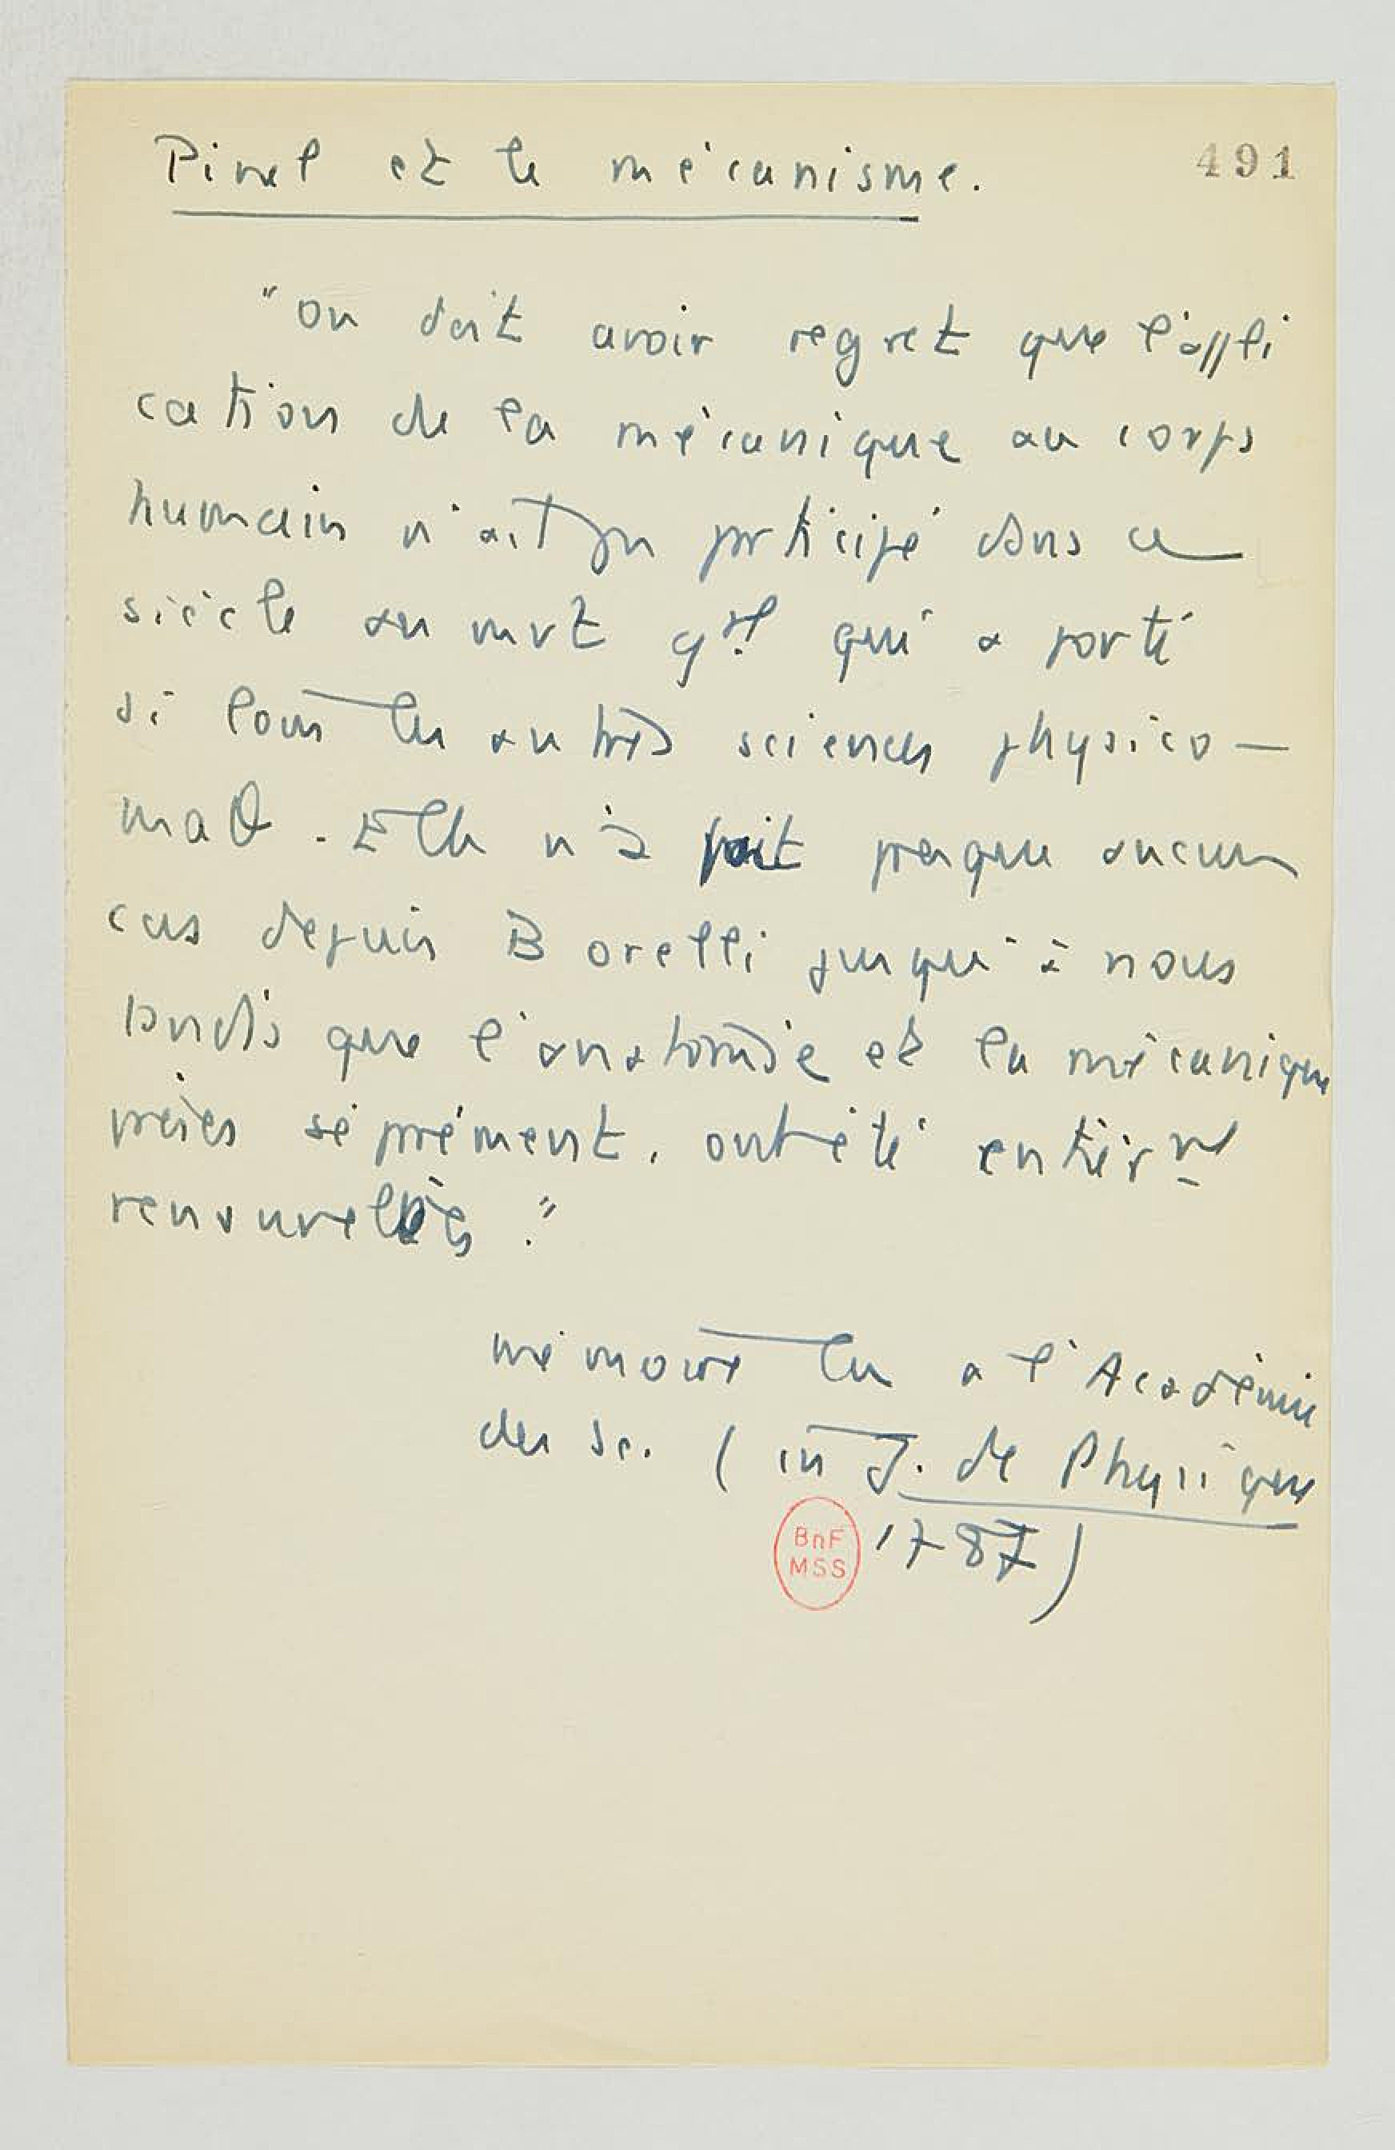 Pinel et le mécanisme.
491
"On doit avoir regret que l'appli
cation de la mécanique au corps
humain n'ait pas participé dans ce
siècle au mvt gal qui a porté
si loin les autres sciences physico-
math. Elle n'a fait presque aucun
cas depuis Borelli jusqu'à nous
tandis que l'anatomie et la mécanique
prises séparément, ont été entièrmt
renouvelées."
mémoire lu à l'Académie
des Sc. (in J. de Physique
1787)
BnF
MSS